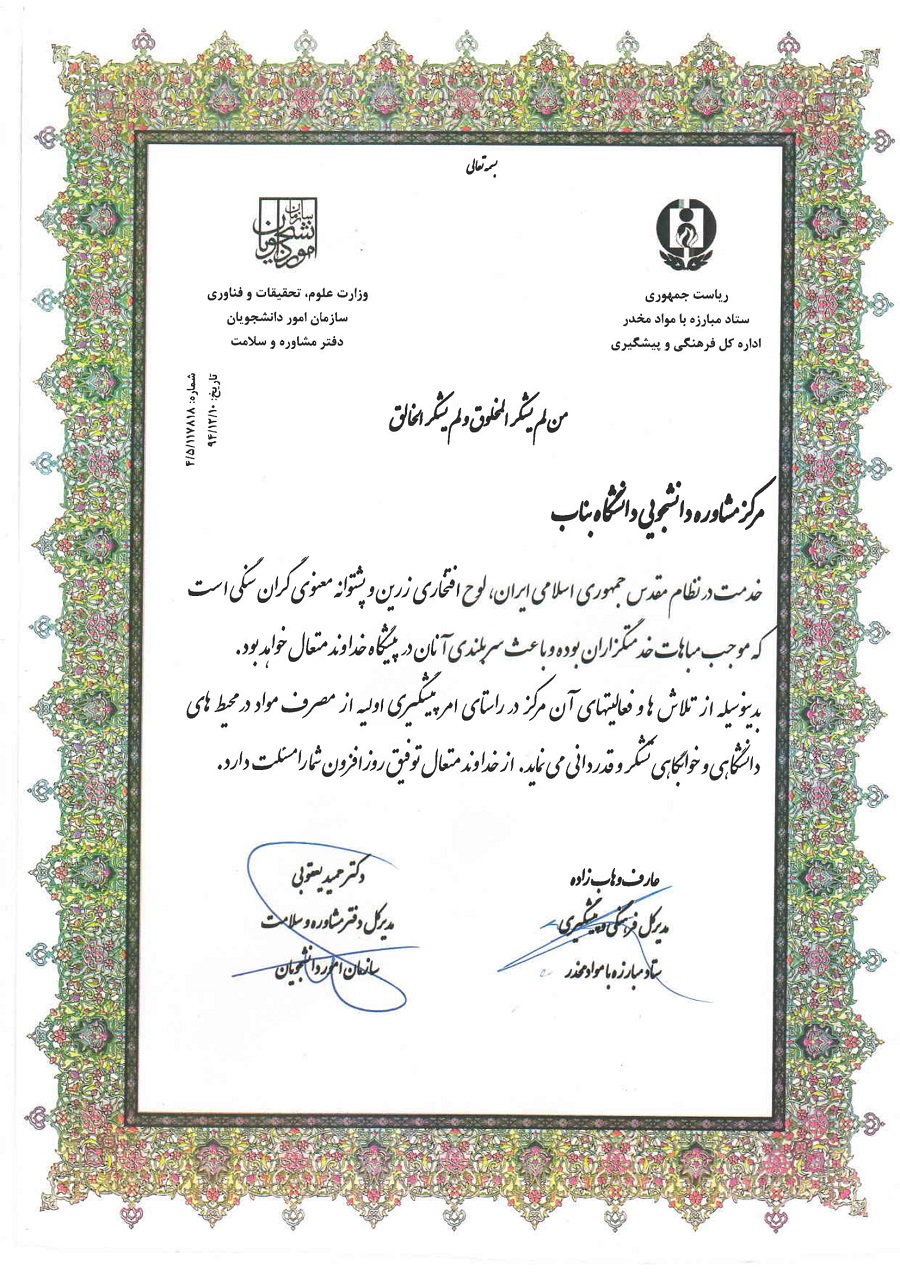 بسمه تعالی
ریاست جمهوری
ستاد مبارزه با مواد مخدر
اداره کل فرهنگی و پیشگیری
سازمان امور دانشجویان
وزارت علوم، تحقیقات و فناوری
سازمان امور دانشجویان
دفتر مشاوره و سلامت
تاریخ: ۹۴/۱۲/۱۰
شماره: ۴/۵/۱۱۷۸۱۸
من لم یشکر المخلوق و لم یشکر الخالق
مرکز مشاوره دانشجویی دانشگاه بناب
خدمت در نظام مقدس جمهوری اسلامی ایران، لوح افتخاری زرین و پشتوانه معنوی گران سنگی است
که موجب مباهات خدمتگزاران بوده و باعث سربلندی آنان در پیشگاه خداوند متعال خواهد بود.
بدینوسیله از تلاش ها و فعالیتهای آن مرکز در راستای امر پیشگیری اولیه از مصرف مواد در محیط های
دانشگاهی و خوابگاهی تشکر و قدردانی می نماید. از خداوند متعال توفیق روز افزون شما را مسئلت دارد.
عارف وهاب زاده
مدیرکل فرهنگی و پیشگیری
ستاد مبارزه با مواد مخدر
دکتر حمید یعقوبی
مدیرکل دفتر مشاوره و سلامت
سازمان امور دانشجویان